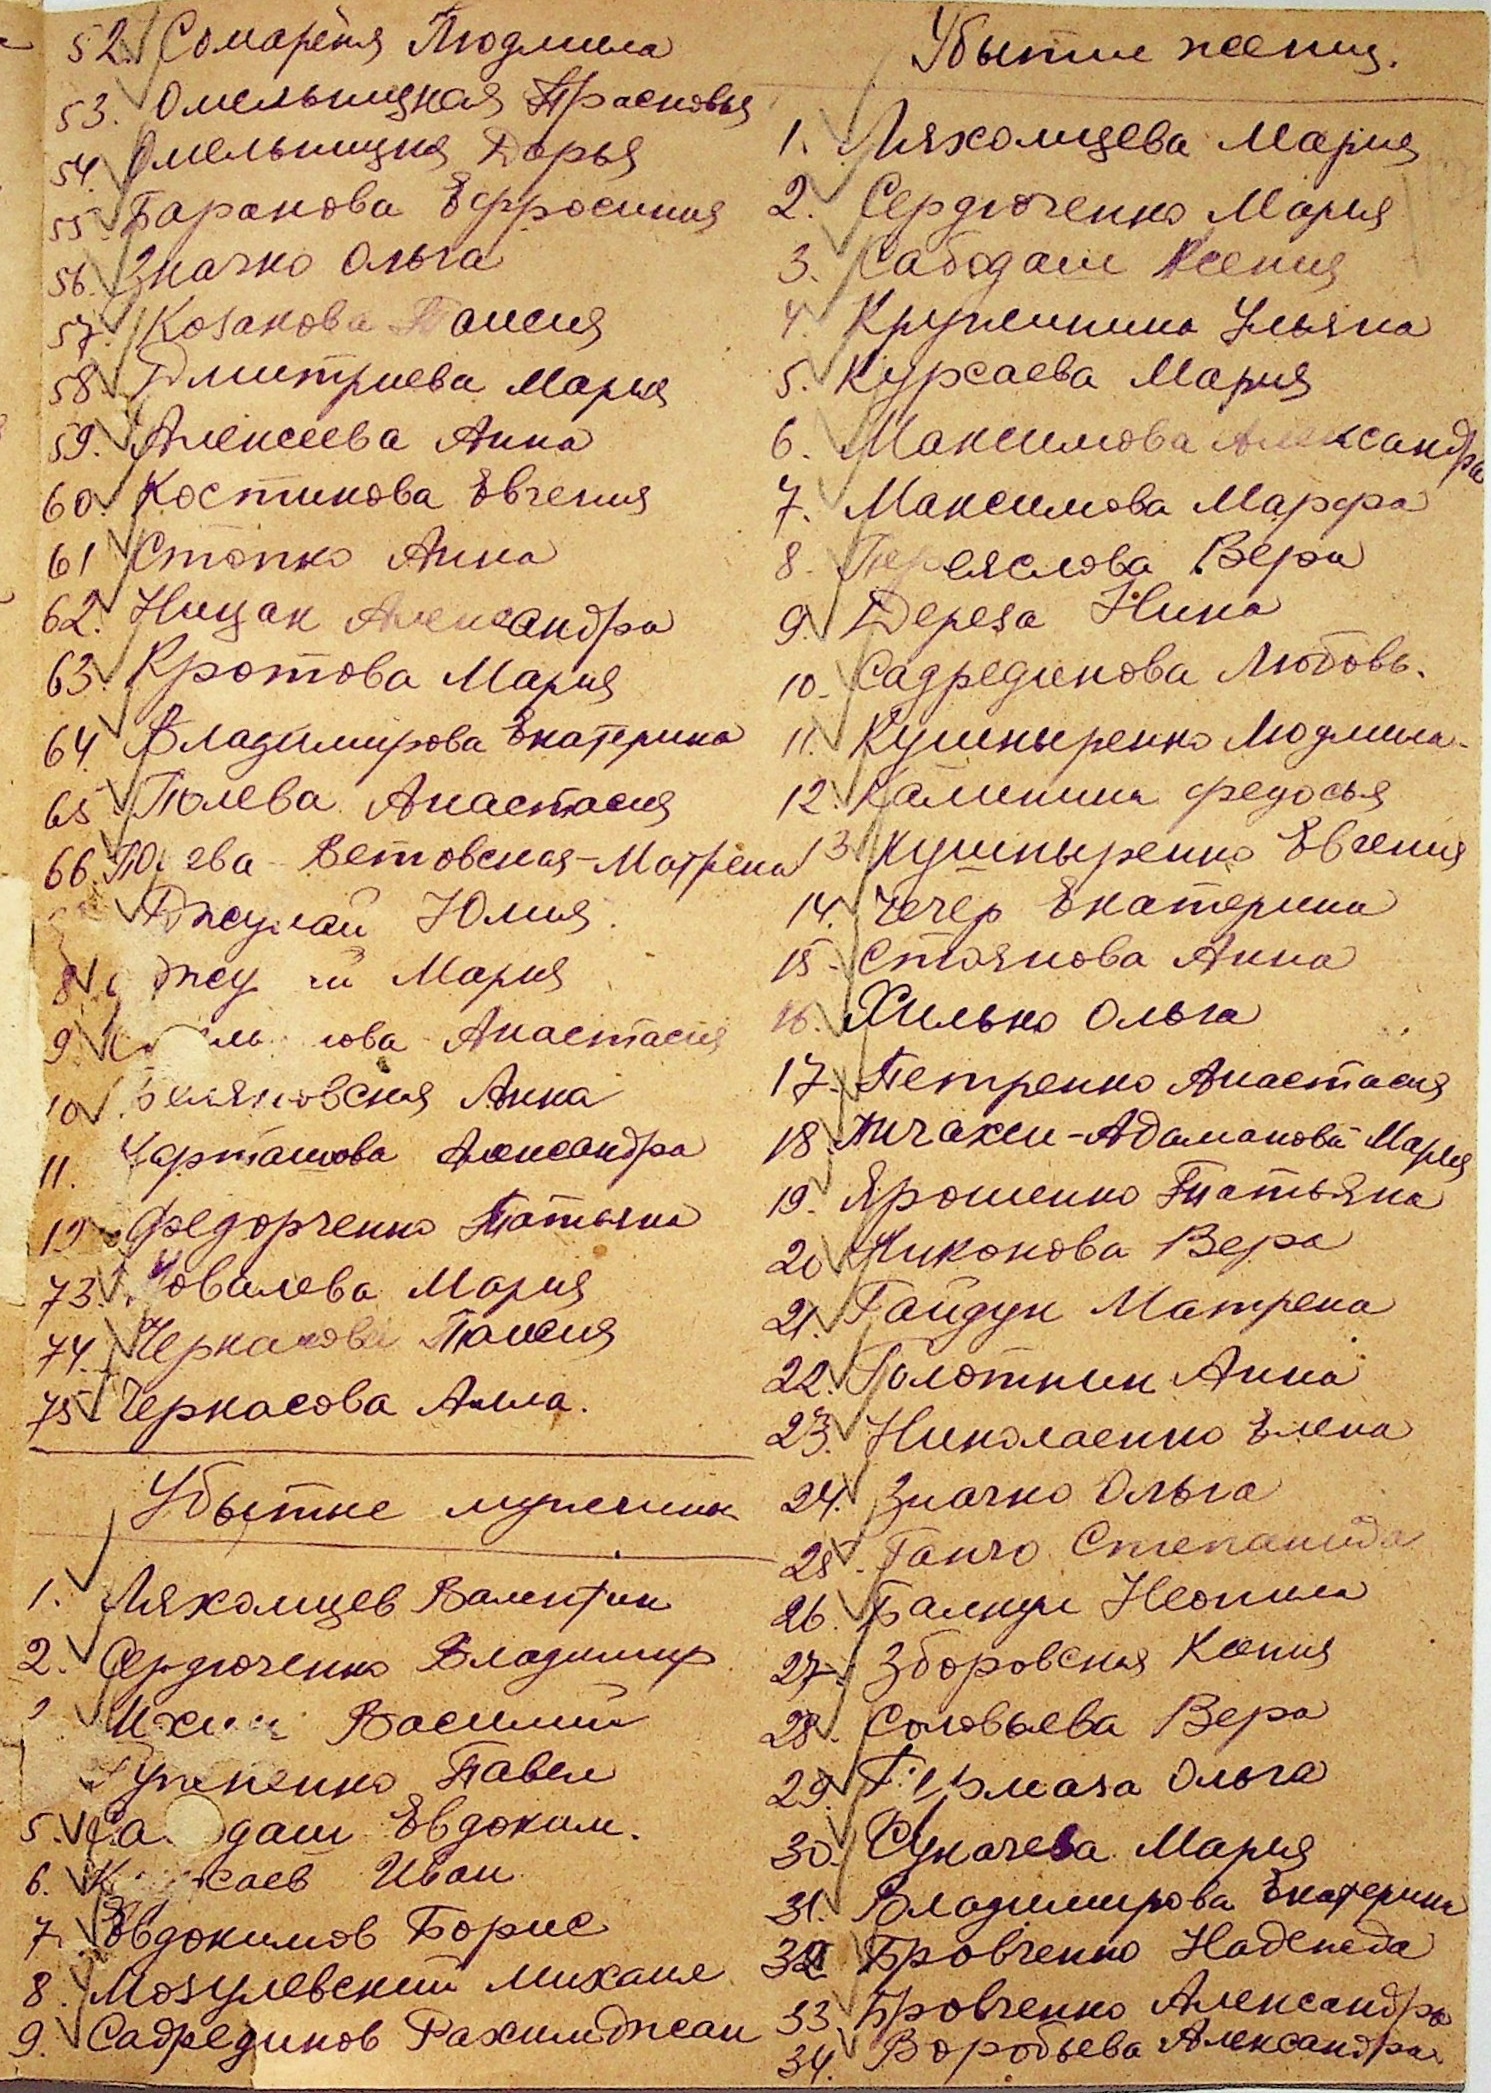 52. Сомареня Людмила
53. Омельницкая Прасковья
54. Омельницкая Дарья
55. Баранова Ефросиния
56. Значко Ольга
57. Козакова Таисия
58. Дмитриева Мария
59. Алексеева Анна
60. Костикова Евгения
61 Стопко Анна
62. Ницак Александра
63. Кротова Мария
64. Владимирова Екатерина
65 Полева Анастасия
66. ева - Ветовская-Матрена
Джулай Юлия
8 Мария
9 лова Анастасия
10 Беляновская Анна
11. Чарташова Александра
Федорченко Татьяна
73. Ковалева Мария
74. Черкасова Таисия
75 Черкасова Алла.
Убытие мужчины
1. Ляхомцев Валентин
2. Сердюченко Владимир
Василий
Павел
5. Са даш Евдоким.
6. К саев Иван
7. Евдокимов Борис
8. Мозулевский Михаил
9. Садрединов Рахимджан
Убытие женщ.
1. Ляхомцева Мария
2. Сердюченко Мария
3. Сабодаш Ксения
4 Крупинина Ульяна
5. Курсаева Мария
6. Максимова Александра
7. Максимова Марфа
8. Переяслова Вера
9. Дереза Нина
10. Садрединова Любовь.
11. Кушныренко Людмила
12. Калинина Федосья
13 Кушныренко Евгения
14. Чечер Екатерина
15. Стоянова Анна
16. Хилько Ольга
17. Петренко Анастасия
18. Пичахси-Адаманова Мария
19. Ярошенко Татьяна
20 Никонова Вера
21. Гайдук Матрена
22. Полоткин Анна
23. Николаенко Елена
24. Значко Ольга
25. Ганчо Степанида
26. Балкун Неонила
27. Зборовская Ксения
28. Соловьева Вера
29. Ольга
30. Сукачева Мария
31. Владимирова Екатерина
32 Бровченко Надежда
33 Бровченко Александра
34. Воробьева Александра